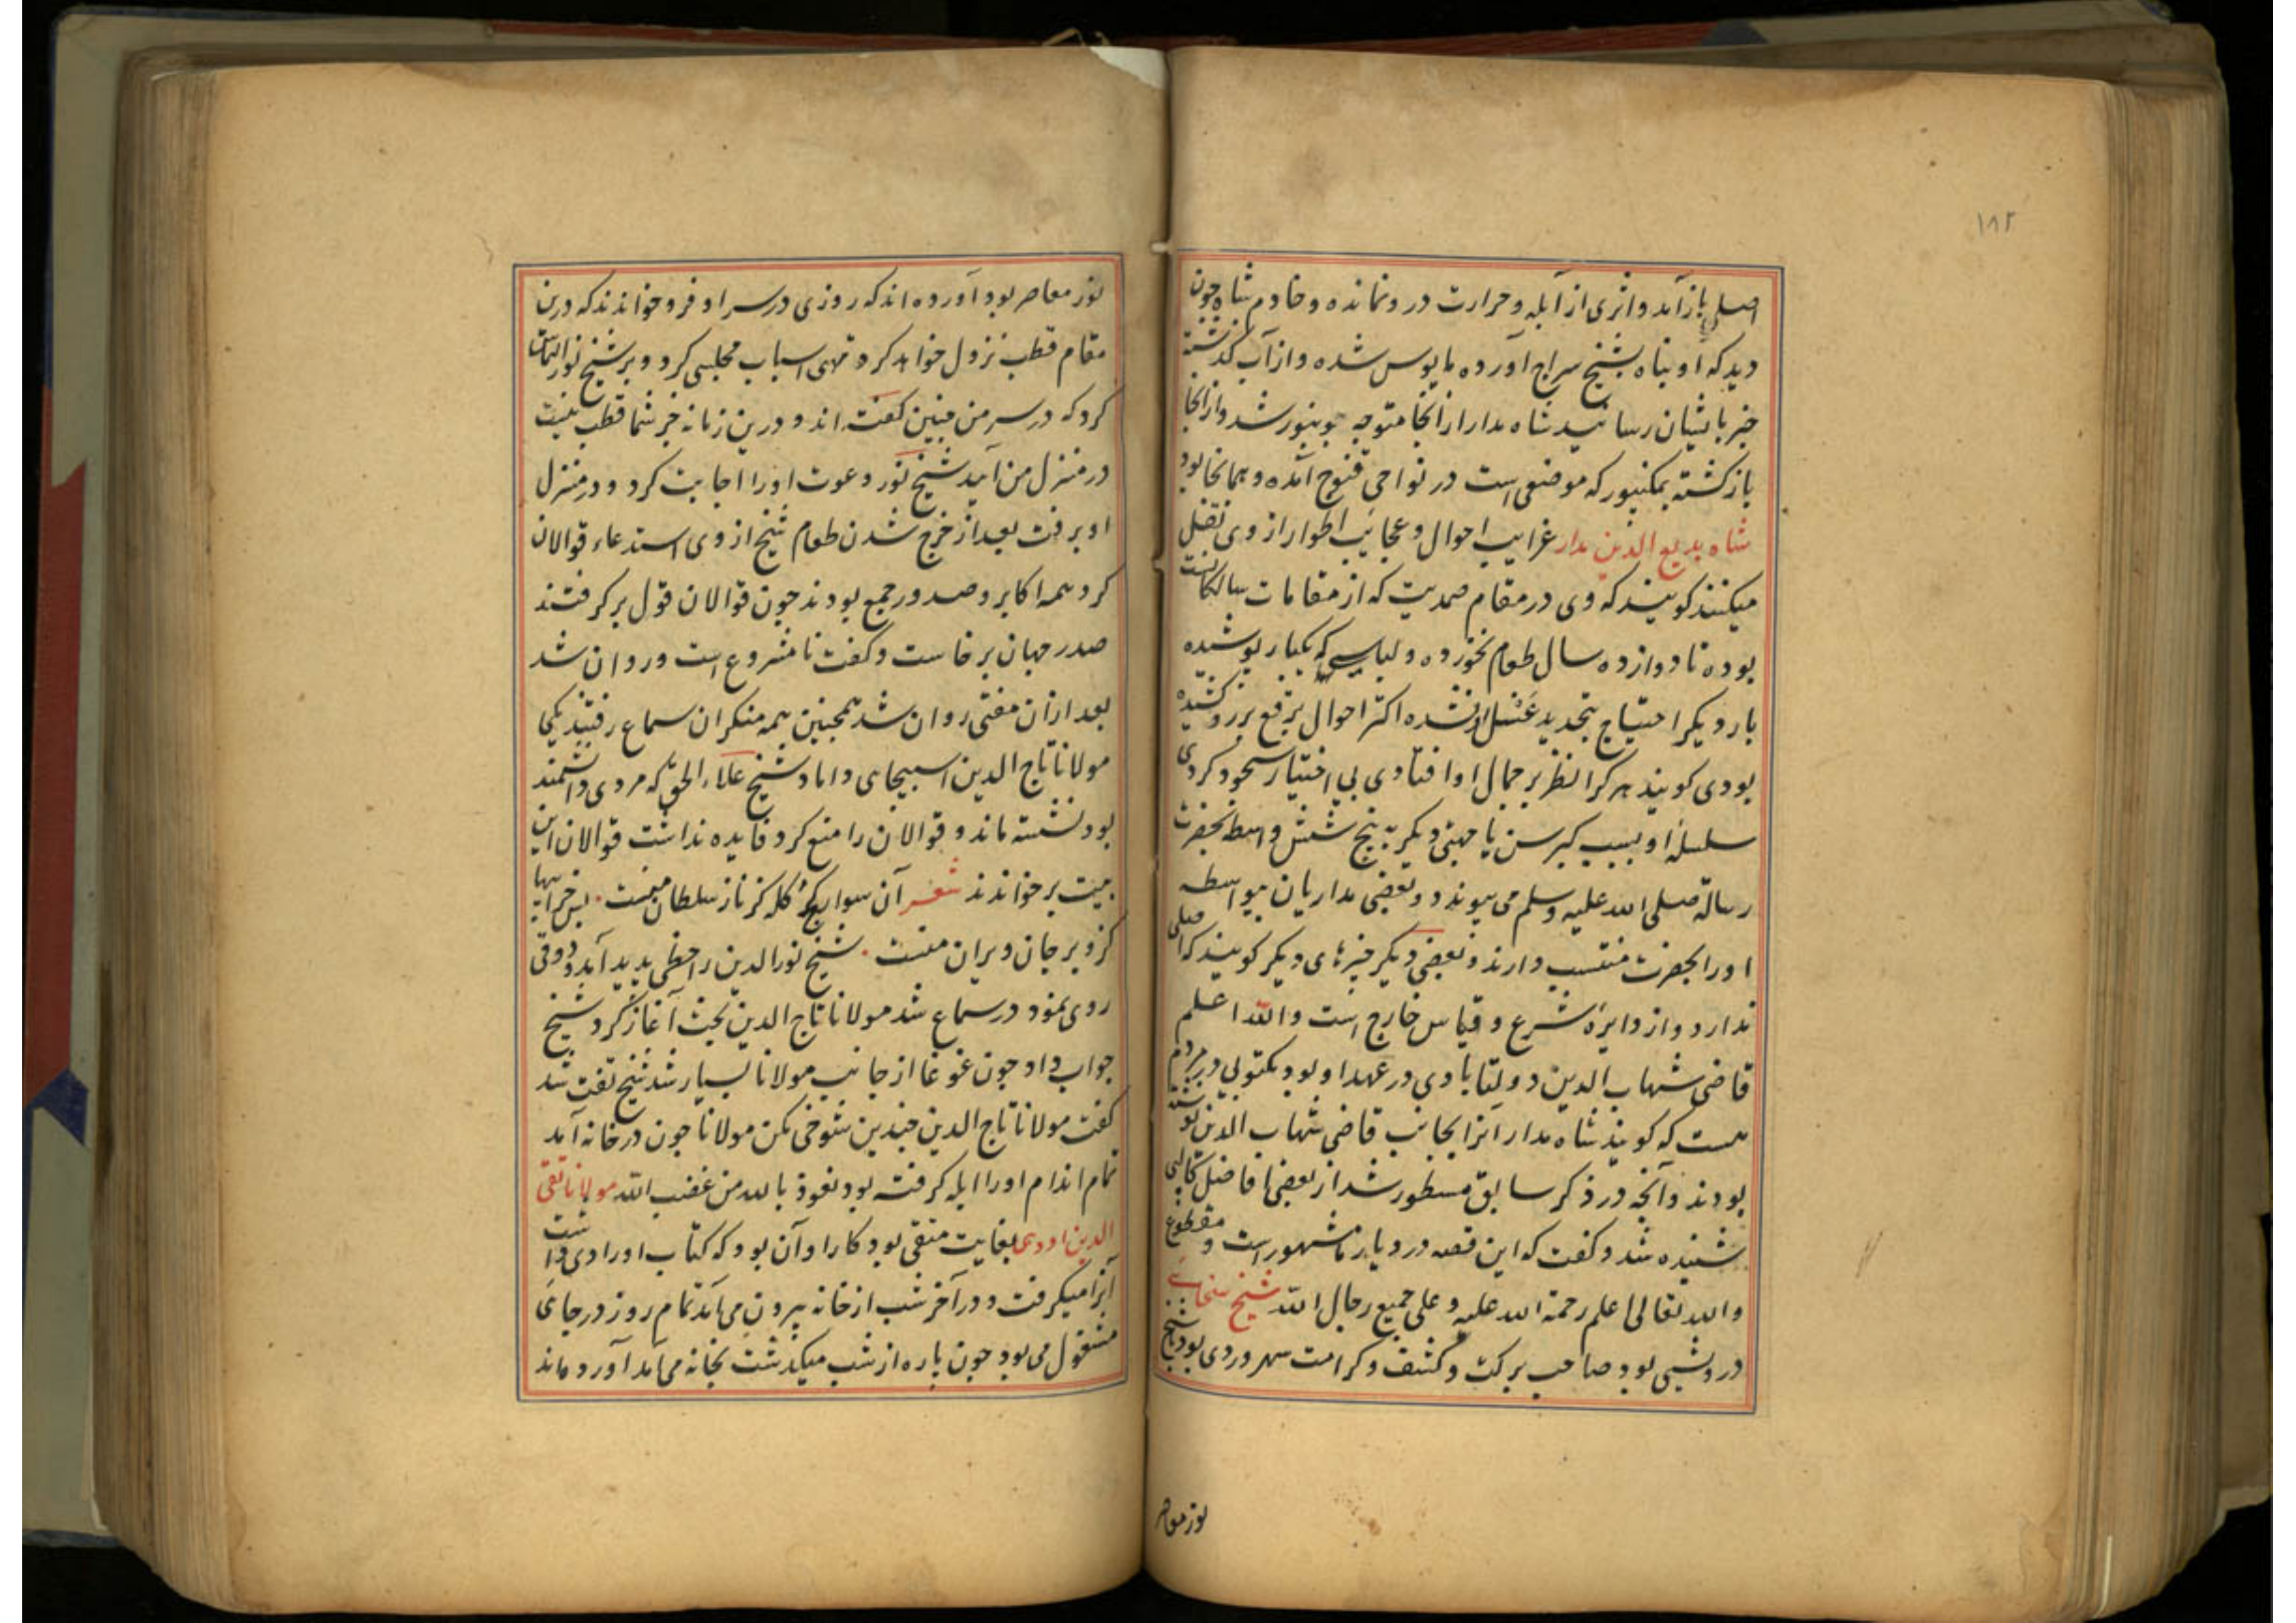 ۱۸۲
اصلی باز آمد و اثری از آبله و حرارت در و نمانده و خادم شاه چون
دید که او پناه بشیخ سراج آورده مایوس شده و از آب گذشته
خبر بایشان رسانید شاه مدار از انجا متوجه جونپور شد و از انجا
بازکشته بمکنپور که موضعی است در نواحی قنوج آمده و همانجا بود
شاه بدیع الدین مدار غرایب احوال و عجایب اطوار از وی نقل
میکنند کویند که وی در مقام صمدیت که از مقامات سالکانست
بوده تا دوازده سال طعام نخورده و لباسی که یکبار پوشیده
بار دیکر احتیاج بتجدید غسل او نشده اکثر احوال برقع بر رو کشیده
بودی کویند هر کرا نظر بر جمال او افتادی بی اختیار سجود کردی
سلسلهٔ او بسبب کبر سن یا جهتی دیکر به پنج شش واسطه بحضرت
رسالة صلی الله علیه وسلم می پیوندد و بعضی مداریان بیواسطه
او را بحضرت منتسب دارند و بعضی دیکر چیزهای دیکر کویند که اصلی
ندارد و از دایرهٔ شرع و قیاس خارج است والله اعلم
قاضی شهاب الدین دولتابادی در عهد او بود مکتوبی در مردم
هست که کویند شاه مدار آنرا بجانب قاضی شهاب الدین نوشته
بودند و آنچه در ذکر سابق مسطور شد از بعضی افاضل کالپی
شنیده شد و کفت که این قصه در دیار ما مشهور است و مقطوع
والله تعالی اعلم رحمة الله علیه و علی جمیع رجال الله شیخ
درویشی بود صاحب برکت و کشف و کرامت سهروردی بود باشیخ
نور معاصر
نور معاصر بود آورده اند که روزی در سر او فرو خواندند که درین
مقام قطب نزول خواهد کرد تهی اسباب مجلس کرد و بر شیخ نور التماس
کرد که در سر من چنین کفته اند و درین زمانه جز شما قطب نیست
در منزل من آیید شیخ نور دعوت او را اجابت کرد و در منزل
او برفت بعد از خرج شدن طعام شیخ از وی استدعاء قوالان
کرد همه اکابر و صدور جمع بودند چون قوالان قول برکرفتند
صدر جهان برخاست و کفت نامشروع است و روان شد
بعد از ان مفتی روان شد همچنین همه منکران سماع رفتند یکجا
مولانا تاج الدین اسبیجابی داماد شیخ علاء الحق که مردی دانشمند
بود نشسته ماند و قوالان را منع کرد فایده نداشت قوالان این
بیت برخواندند شعر آن سوار کج کله کز ناز سلطان منست بس خرابیها
کزو بر جان ویران منست شیخ نور الدین را حظی پدید آمد و ذوقی
روی نمود در سماع شد مولانا تاج الدین بحث آغاز کرد شیخ
جواب داد چون غوغا از جانب مولانا بسیار شد شیخ تفت شد
کفت مولانا تاج الدین چندین شوخی مکن مولانا چون در خانه آمد
تمام اندام او را ابله کرفته بود نعوذ بالله من غضب الله مولانا تقی
الدین اودهی بغایت متقی بود کار او آن بود که کتاب اورادی داشت
آنرا میکرفت و در آخر شب از خانه بیرون می آمد تمام روز در جائی
مشغول می بود چون پاره از شب میکذشت بخانه می آمد آورده اند